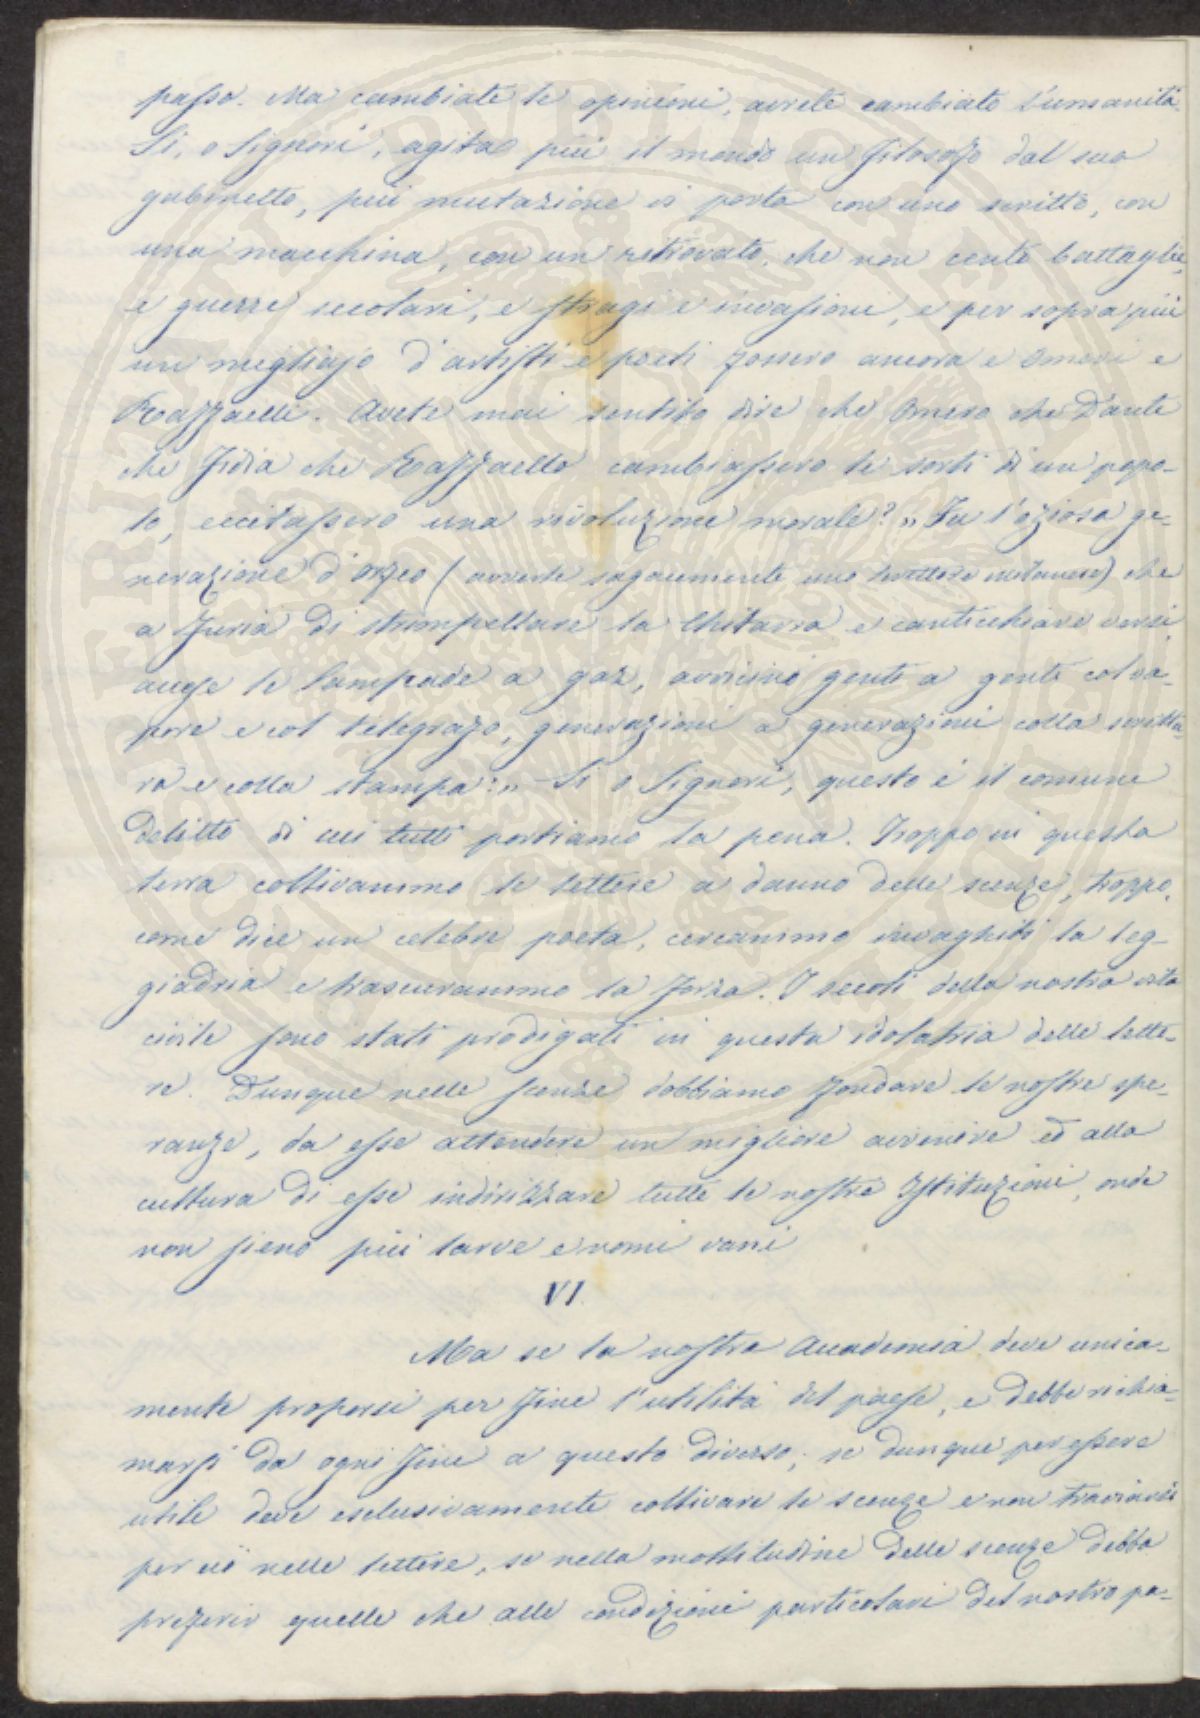 passo. Ma cambiate le opinioni, avrete cambiato l'umanità.
Si, o Signori, agita più il mondo un filosofo dal suo
gabinetto, più mutazione ei porta con uno scritto, con
una macchina, con un ritrovato, che non cento battaglie,
e guerre secolari, e stragi e invasioni, e per sopra più
un migliajo d'artisti e poeti fossero ancora e Omeri e
Raffaelli. Avete mai sentito dire che Omero che Dante
che Fidia che Raffaello cambiassero le sorti di un popo-
lo, eccitassero una rivoluzione morale? „ Fu l'oziosa ge-
nerazione d'Orfeo (avverte sagacemente uno scrittore) che
a furia di strimpellare la chitarra e canticchiare versi
accese le lampade a gaz, avvicinò genti a genti col va-
pore e col telegrafo, generazioni a generazioni colla scrittu-
ra e colla stampa: „ Si o Signori, questo è il comune
delitto di cui tutti portiamo la pena. Troppo in questa
terra coltivammo le lettere a danno delle scenze, troppo,
come dice un celebre poeta, cercammo invaghiti la leg-
giadria e trascurammo la forza. I secoli della nostra vita
civile sono stati prodigati in questa idolatria delle lette-
re. Dunque nelle scenze dobbiamo fondare le nostre spe-
ranze, da esse attendere un migliore avvenire ed alla
cultura di esse indirizzare tutte le nostre Istituzioni, onde
non sieno più larve e nomi vani
VI
Ma se la nostra Accademia deve unica-
mente proporsi per fine l'utilità del paese, e debbe richia-
marsi da ogni fine a questo diverso; se dunque per essere
utile deve esclusivamente coltivare le scenze e non
per ciò nelle lettere, se nella moltitudine delle scenze debba
preferir quelle che alle condizioni particolari del nostro pa-